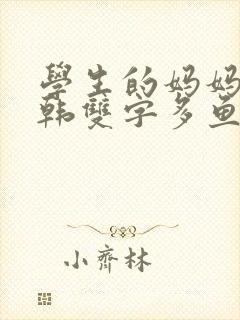 學生的妈妈
韩雙字多鱼
小齊林